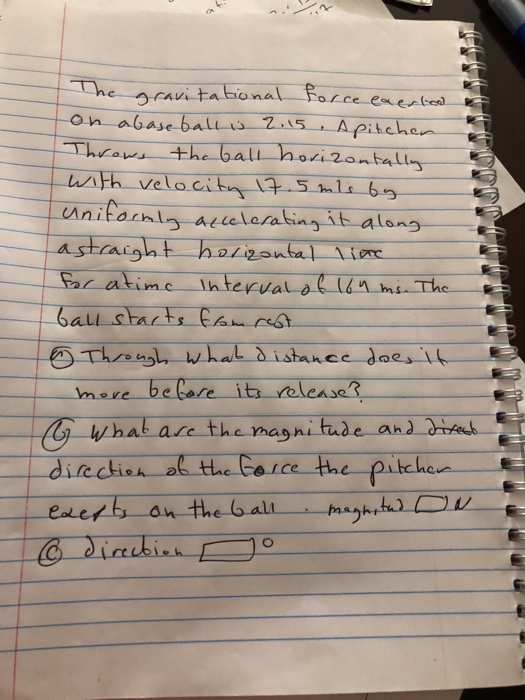 The gravitational force exerted
on a baseball is 2.15. A pitcher
Throws the ball horizontally
with velocity 17.5 m/s by
uniformly accelerating it along
a straight horizontal line
for a time interval of 169 ms. The
ball starts from rest
Ⓐ Through what distance does it
move before its release?
ⓑ What are the magnitude and direct
direction of the force the pitcher
exerts on the ball. magnitud N
Ⓒ direction °